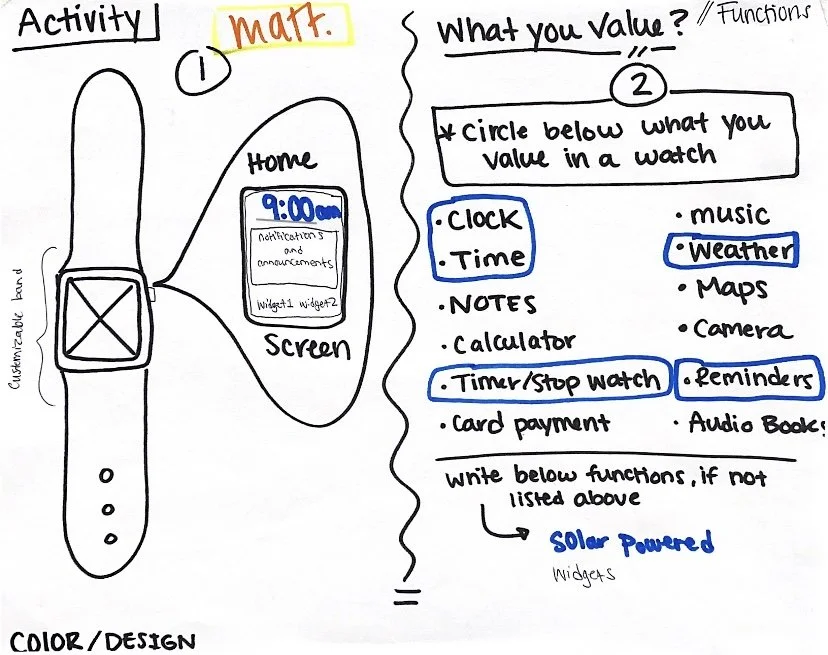 Activity
matt.
1
Home
9:00am
notifications
and
announcements
widget1 widget2
Screen
Customizable band
COLOR/DESIGN
What you Value? // Functions
2
* Circle below what you
value in a watch
• Clock
• Time
• NOTES
• Calculator
• Timer/Stop watch
• Card payment
• music
• Weather
• Maps
• Camera
• Reminders
• Audio Books
write below functions, if not
listed above
Solar Powered
Widgets